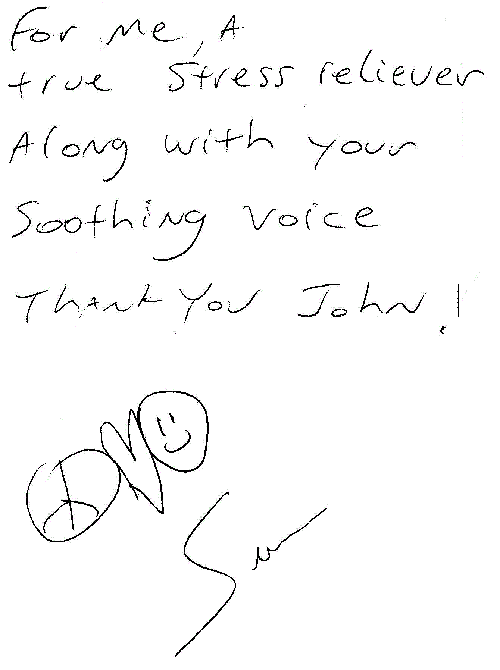 For Me, A
true Stress reliever
Along with your
Soothing Voice
THANK YOU JOHN!